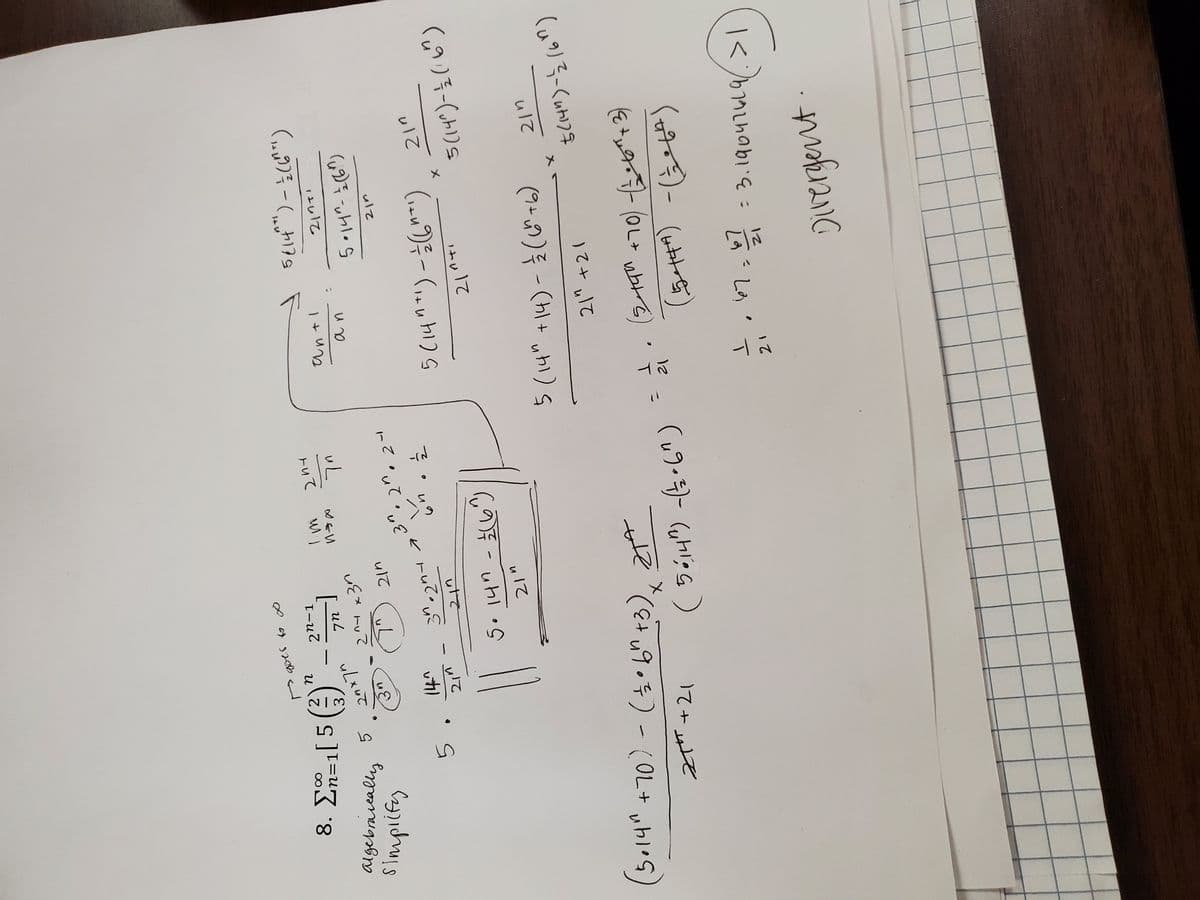 → goes to ∞
8. Σ∞n=1 [ 5 (2/3)^n − 2^(n−1)/7^n ] lim n→∞ 2^(n-1)/7^n
algebraically simplify
5 · 2^n × 7^n / 3^n - 2^(n-1) × 3^n / 7^n 21^n
5 · 14^n/21^n − 3^n · 2^(n-1)/21^n → 3^n · 2^n · 2^-1
6^n · 1/2
|| 5 · 14^n − 1/2(6^n) / 21^n ||
an+1 / an : 5(14^(n+1)) − 1/2(6^(n+1)) / 21^(n+1)
5 · 14^n − 1/2(6^n) / 21^n
5(14^(n+1)) − 1/2(6^(n+1)) / 21^(n+1) × 21^n / 5(14^n) − 1/2(6^n)
5(14^n + 14) − 1/2(6^n + 6) / 21^n + 21 × 21^n / 5(14^n) − 1/2(6^n)
(5·14^n + 70) − (1/2 · 6^n + 3) / 21^n + 21 × 21^n / (5·14^n) − (1/2 · 6^n) = 1/21 · (5·14^n + 70) − (1/2 · 6^n + 3) / (5·14^n) − (1/2 · 6^n)
1/21 · 67 = 67/21 = 3.19047619 > 1
Divergent.